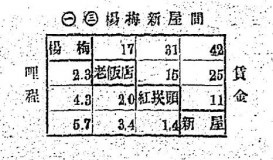 ㊀㊂楊梅新屋間
楊梅 17 31 42
2.3 老飯店 15 25
4.3 2.0 紅崁頭 11
5.7 3.4 1.4 新屋
哩程
賃金